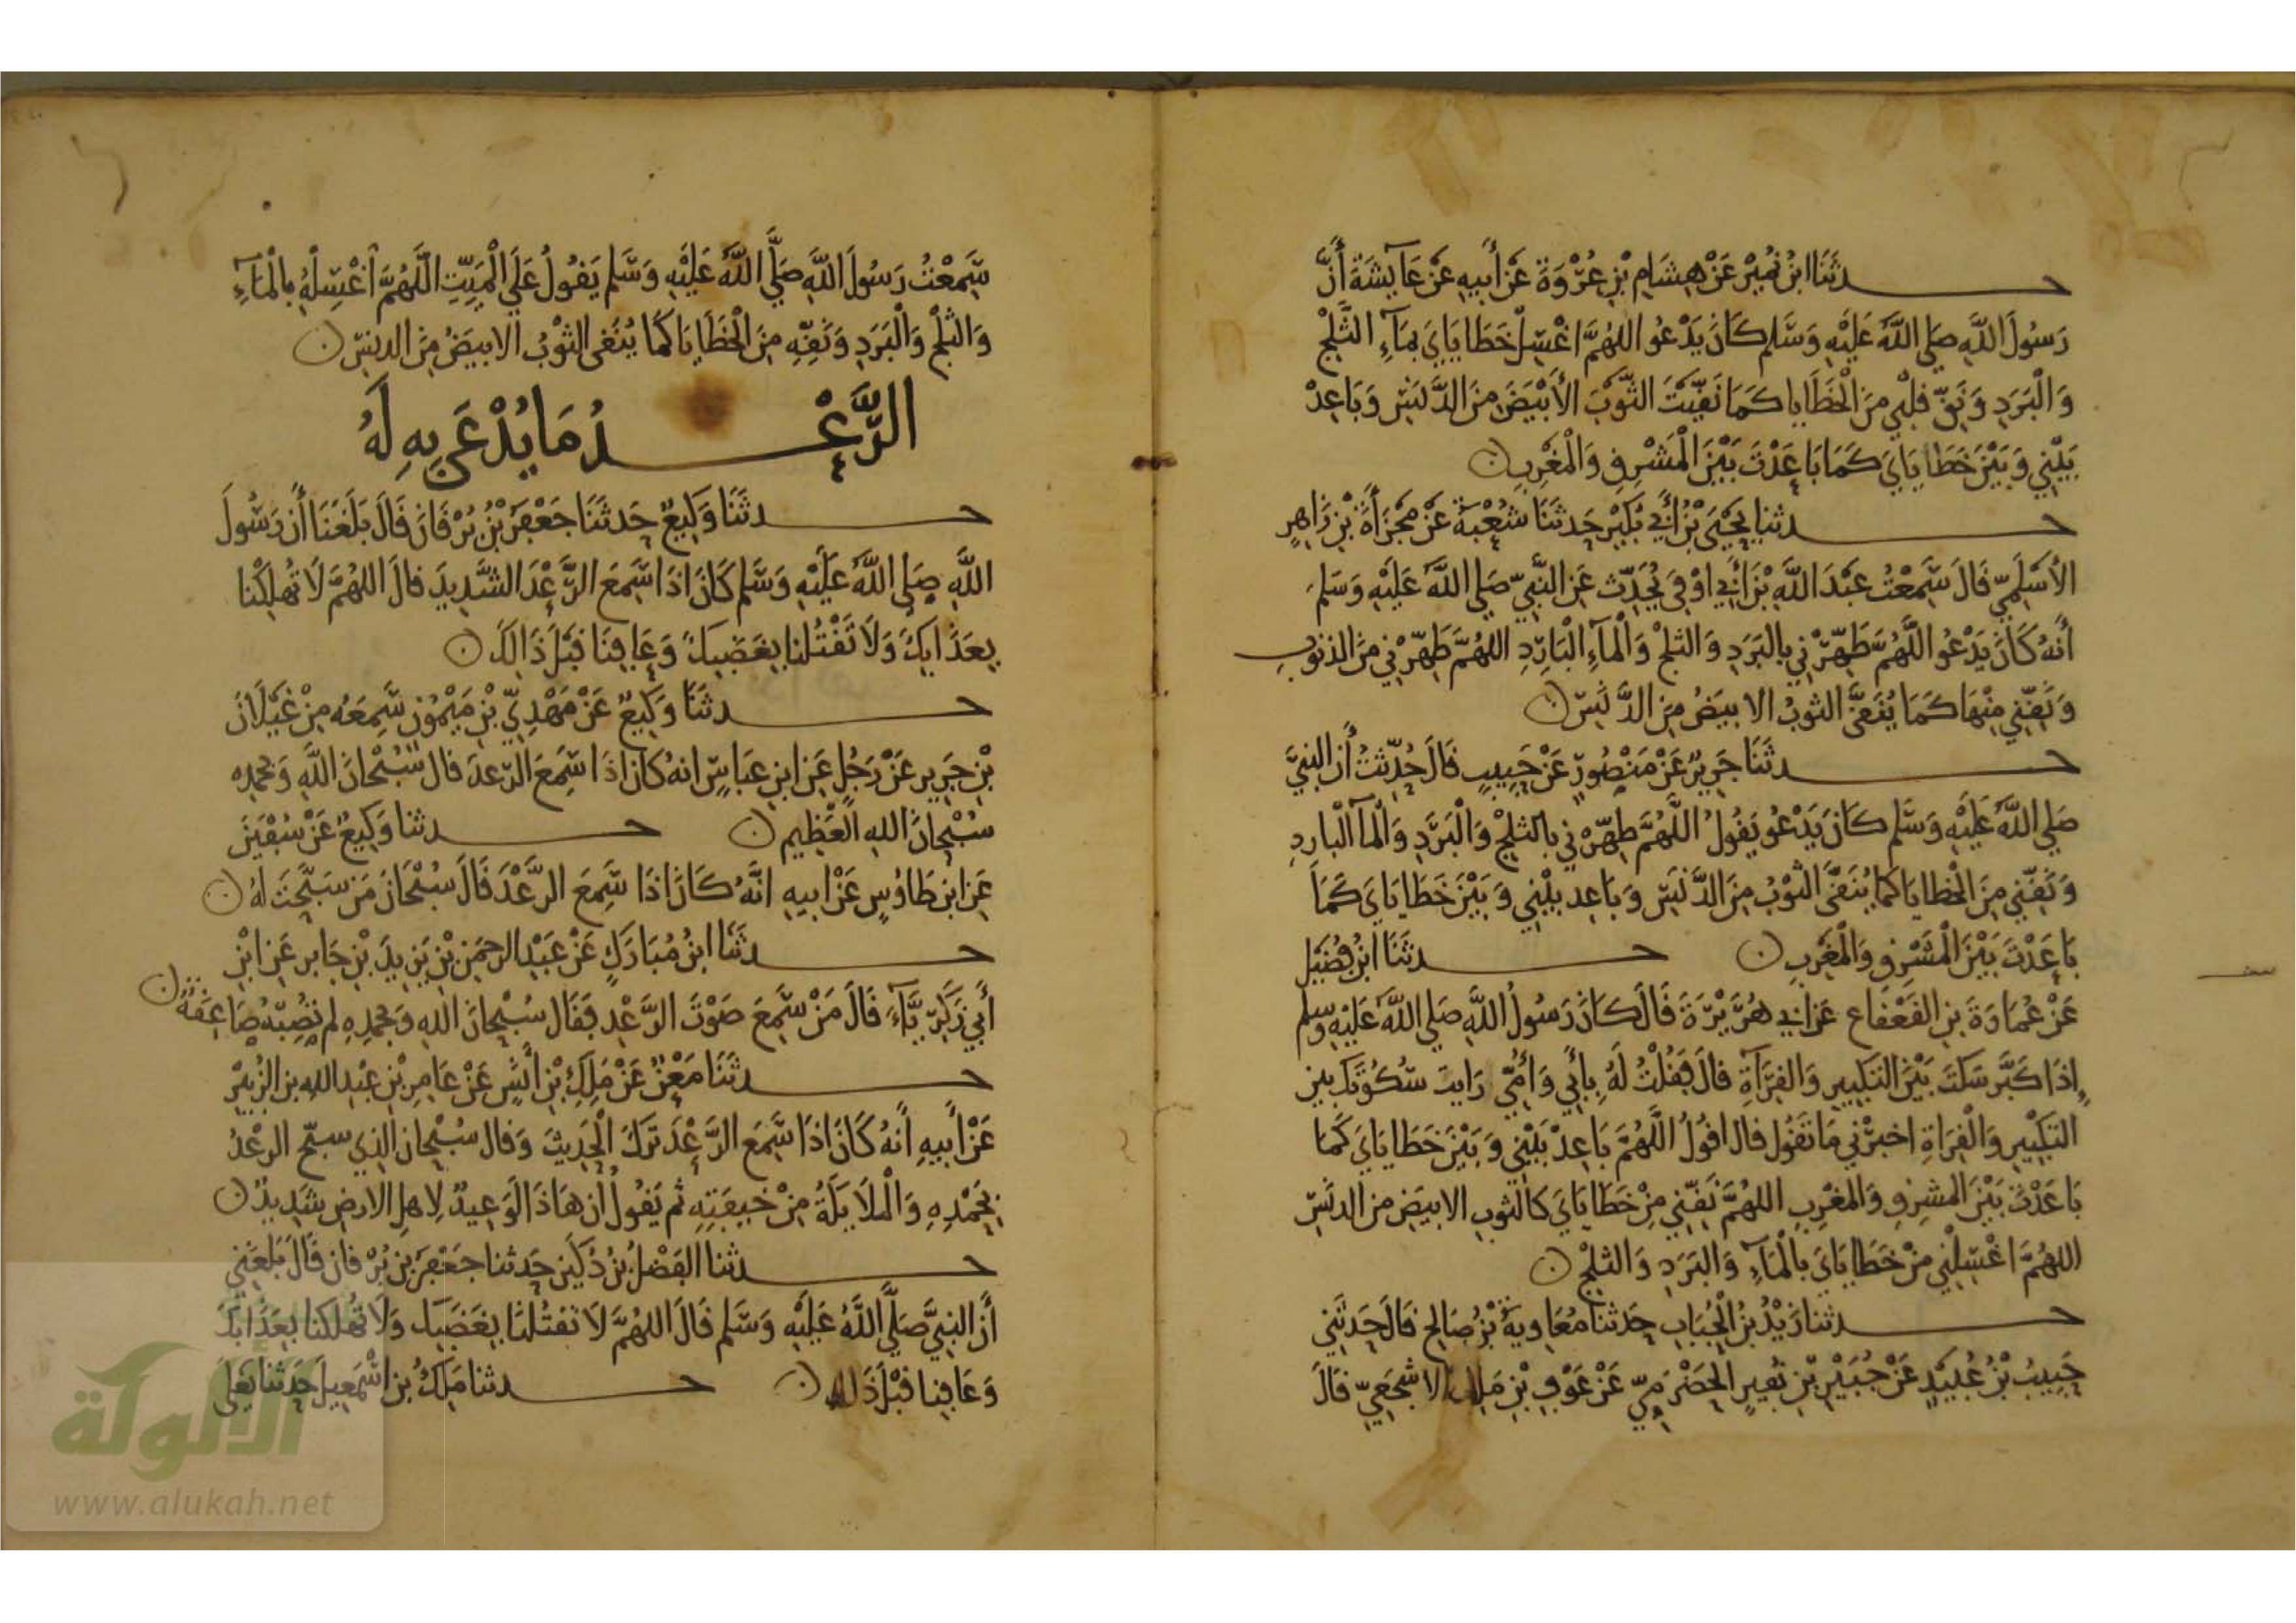 حدثنا ابن نمير عن هشام بن عروة عن أبيه عن عايشة أن
رسول الله صلى الله عليه وسلم كان يدعو اللهم اغسل خطاياي بماء الثلج
والبرد ونق قلبي من الخطايا كما نقيت الثوب الأبيض من الدنس وباعد
بيني وبين خطاياي كما باعدت بين المشرق والمغرب
حدثنا يحيى بن أبي بكير حدثنا شعبة عن مجزأة بن زاهر
الأسلمي قال سمعت عبد الله بن أبي اوفى يحدث عن النبي صلى الله عليه وسلم
أنه كان يدعو اللهم طهرني بالبرد والثلج والماء البارد اللهم طهرني من الذنوب
ونقني منها كما ينقى الثوب الابيض من الدنس
حدثنا جرير عن منصور عن حبيب قال حدثت أن النبي
صلى الله عليه وسلم كان يدعو يقول اللهم طهرني بالثلج والبرد والمآ البارد
ونقني من الخطايا كما ينقى الثوب من الدنس وباعد بيني وبين خطاياي كما
باعدت بين المشرق والمغرب حدثنا ابن فضيل
عن عمارة بن القعقاع عن ابي هريرة قال كان رسول الله صلى الله عليه وسلم
إذا كبر سكت بين التكبير والقراة قال فقلت له بأبي وأمي رايت سكوتك بين
التكبير والقراة اخبرني ما تقول قال اقول اللهم باعد بيني وبين خطاياي كما
باعدت بين المشرق والمغرب اللهم نقني من خطاياي كالثوب الابيض من الدنس
اللهم اغسلني من خطاياي بالماء والبرد والثلج
حدثنا زيد بن الحباب حدثنا معاوية بن صالح قال حدثني
حبيب بن عبيد عن جبير بن نفير الحضرمي عن عوف بن ملك الاشجعي قال
سمعت رسول الله صلى الله عليه وسلم يقول على الميت اللهم اغسله بالماء
والثلج والبرد ونقه من الخطايا كما ينقى الثوب الابيض من الدنس
الرعد ما يدعى به له
حدثنا وكيع حدثنا جعفر بن برقان قال بلغنا أن رسول
الله صلى الله عليه وسلم كان اذا سمع الرعد الشديد قال اللهم لا تهلكنا
بعذابك ولا تقتلنا بغضبك وعافنا قبل ذالك
حدثنا وكيع عن مهدي بن ميمون سمعه من غيلان
بن جرير عن رجل عن ابن عباس انه كان اذا سمع الرعد قال سبحان الله وبحمده
سبحان الله العظيم حدثنا وكيع عن سفين
عن ابن طاوس عن ابيه انه كان اذا سمع الرعد قال سبحان من سبحت له
حدثنا ابن مبارك عن عبد الرحمن بن يزيد بن جابر عن ابن
أبي زكرياء قال من سمع صوت الرعد فقال سبحان الله وبحمده لم تصبه صاعقة
حدثنا معن عن ملك بن أنس عن عامر بن عبد الله بن الزبير
عن أبيه أنه كان اذا سمع الرعد ترك الحديث وقال سبحان الذي سبح الرعد
بحمده والملايكة من خيفته ثم يقول ان هاذا لوعيد لاهل الارض شديد
حدثنا الفضل بن دكين حدثنا جعفر بن برقان قال بلغني
أن النبي صلى الله عليه وسلم قال اللهم لا تقتلنا بغضبك ولا تهلكنا بعذابك
وعافنا قبل ذلك حدثنا ملك بن اسمعيل حدثنا يعلى
الألوكة
www.alukah.net